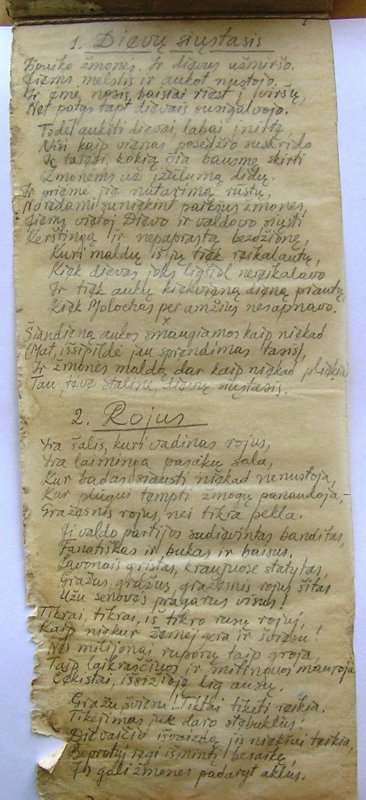 1. Dievų siųstasis
žmonės. Ir dievus užmiršo.
Jiems melstis ir aukot nustojo.
Ir ėmė nosis baisiai riest į viršų,
Net patys tapt dievais susigalvojo.
Todėl aukšti dievai, labai įnirtę,
Visi kaip vienas posėdžio suskrido
Ir tarėsi, kokią čia bausmę skirti
Žmonėms už įžūlumą didų.
Ir priėmė jie nutarimą rūstų,
Norėdami suniekint paikšus žmones,
Jiems vietoj Dievo ir valdovo siųsti
Kerštingą ir nepaprastą beždžionę,
Kuri maldų iš jų tiek reikalautų,
Kiek dievas joks ligšiol nereikalavo
Ir tiek aukų kiekvieną dieną priautų,
Kiek Molochas per amžius nesapnavo.
Šiandieną aukos smaugiamos kaip niekad
(Mat, išsipildė jau sprendimas tasis),
Ir žmonės maldą dar kaip niekad
Tau, tėve Staline, dievų siųstasis.
2. Rojus
Yra šalis, kuri vadinas rojus,
Yra laiminga pasakų šala,
Kur badas siausti niekad nenustoja,
Kur plūgui tempti žmogų panaudoja,-
Gražesnis rojus, nei tikra pekla.
Jį valdo partijos sudievintas banditas,
Fanatiškas ir bukas ir baisus,
Lavonais grįstas, kraujuose statytas,
Gražus, gražus, gražesnis rojus šitas
Užu senovės pragarus visus!
Tikrai, tikrai, iš tikro rusų rojus,
Kaip niekur žemėj gera ir šviesu!
Nes milijonai ruporų taip groja,
Taip laikraščiuos ir mitinguos
Čekistai, išsižioję lig ausų.
Gražu vienu! Tiktai tikėti reikia.
Tikėjimas juk daro stebuklus!
Dievaičio išvaizdą jis niekšui teikia,
Beprotį regi išmintį
Ir gali žmones padaryt aklus.